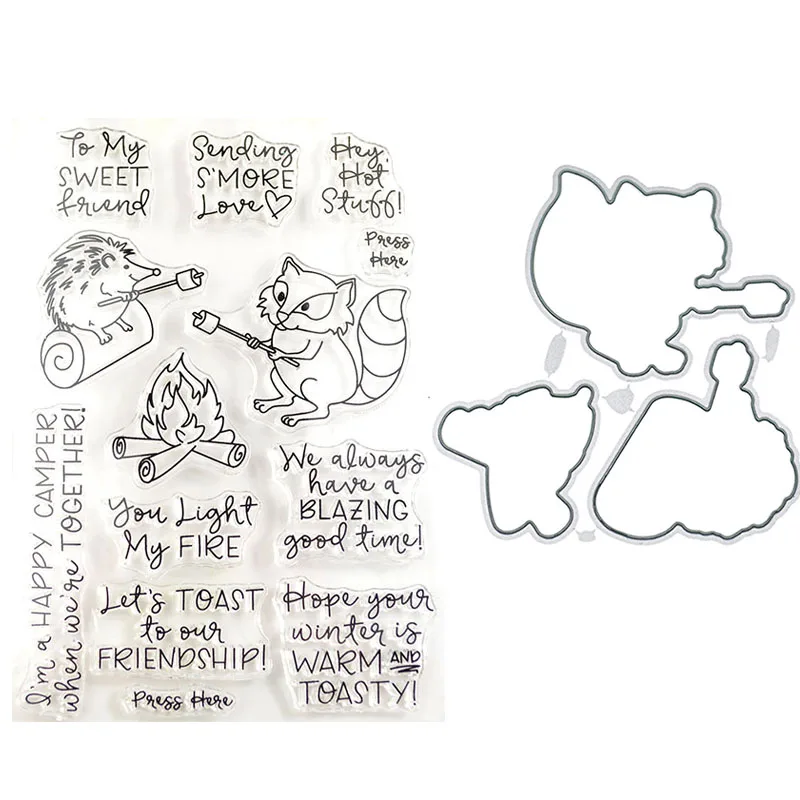 To My
SWEET
friend
Sending
S'MORE
Love
Hey,
Hot
Stuff!
Press
Here
We always
have a
BLAZING
good time!
You Light
My FIRE
I'm a HAPPY CAMPER
when we're TOGETHER!
Let's TOAST
to our
FRIENDSHIP!
Hope your
winter is
WARM AND
TOASTY!
Press Here